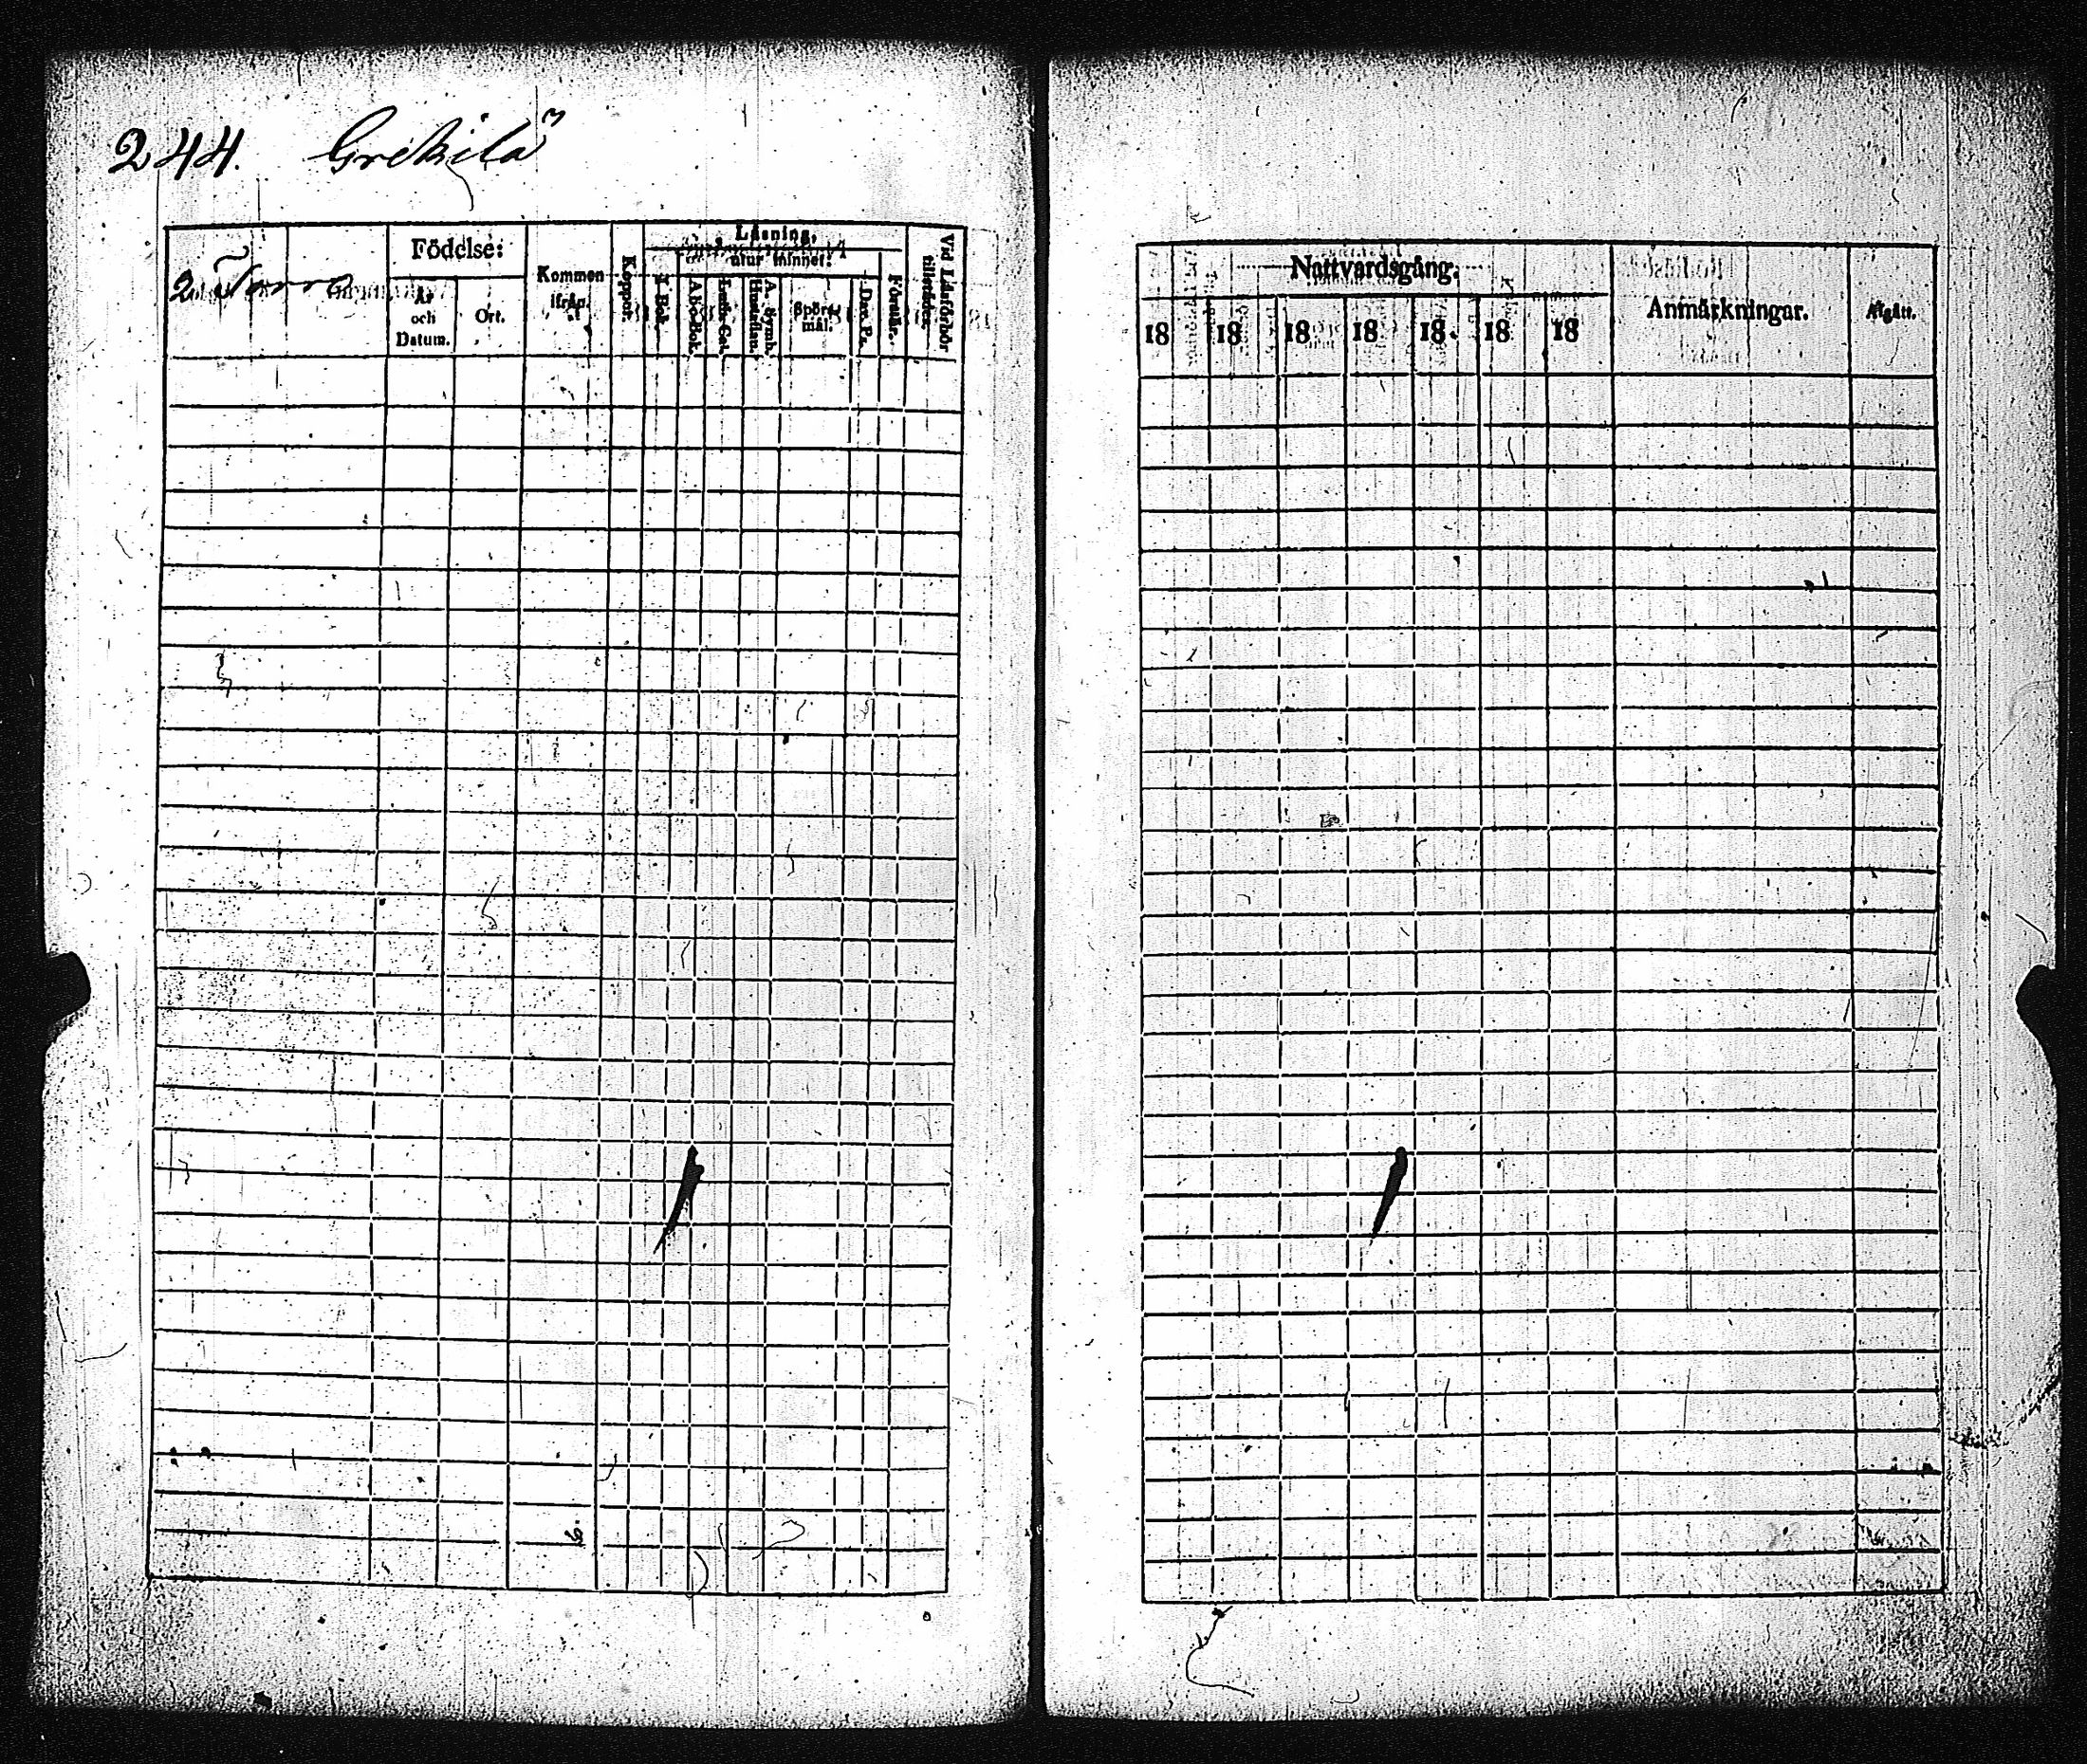 244. Grekilä
2. Torro
Födelse:
År och Datum.
Ort.
Kommen ifrån.
Koppor.
Läsning.
I Bok.
utur minnet:
A b c-Bok.
Luth. Cat.
A. Symb. Hustaflan.
Spörs-mål.
Dav. Ps.
Förstår.
Vid Läsförhör tillstädes.
Nattvardsgång.
18 18 18 18 18. 18 18
Anmärkningar.
Afgått.